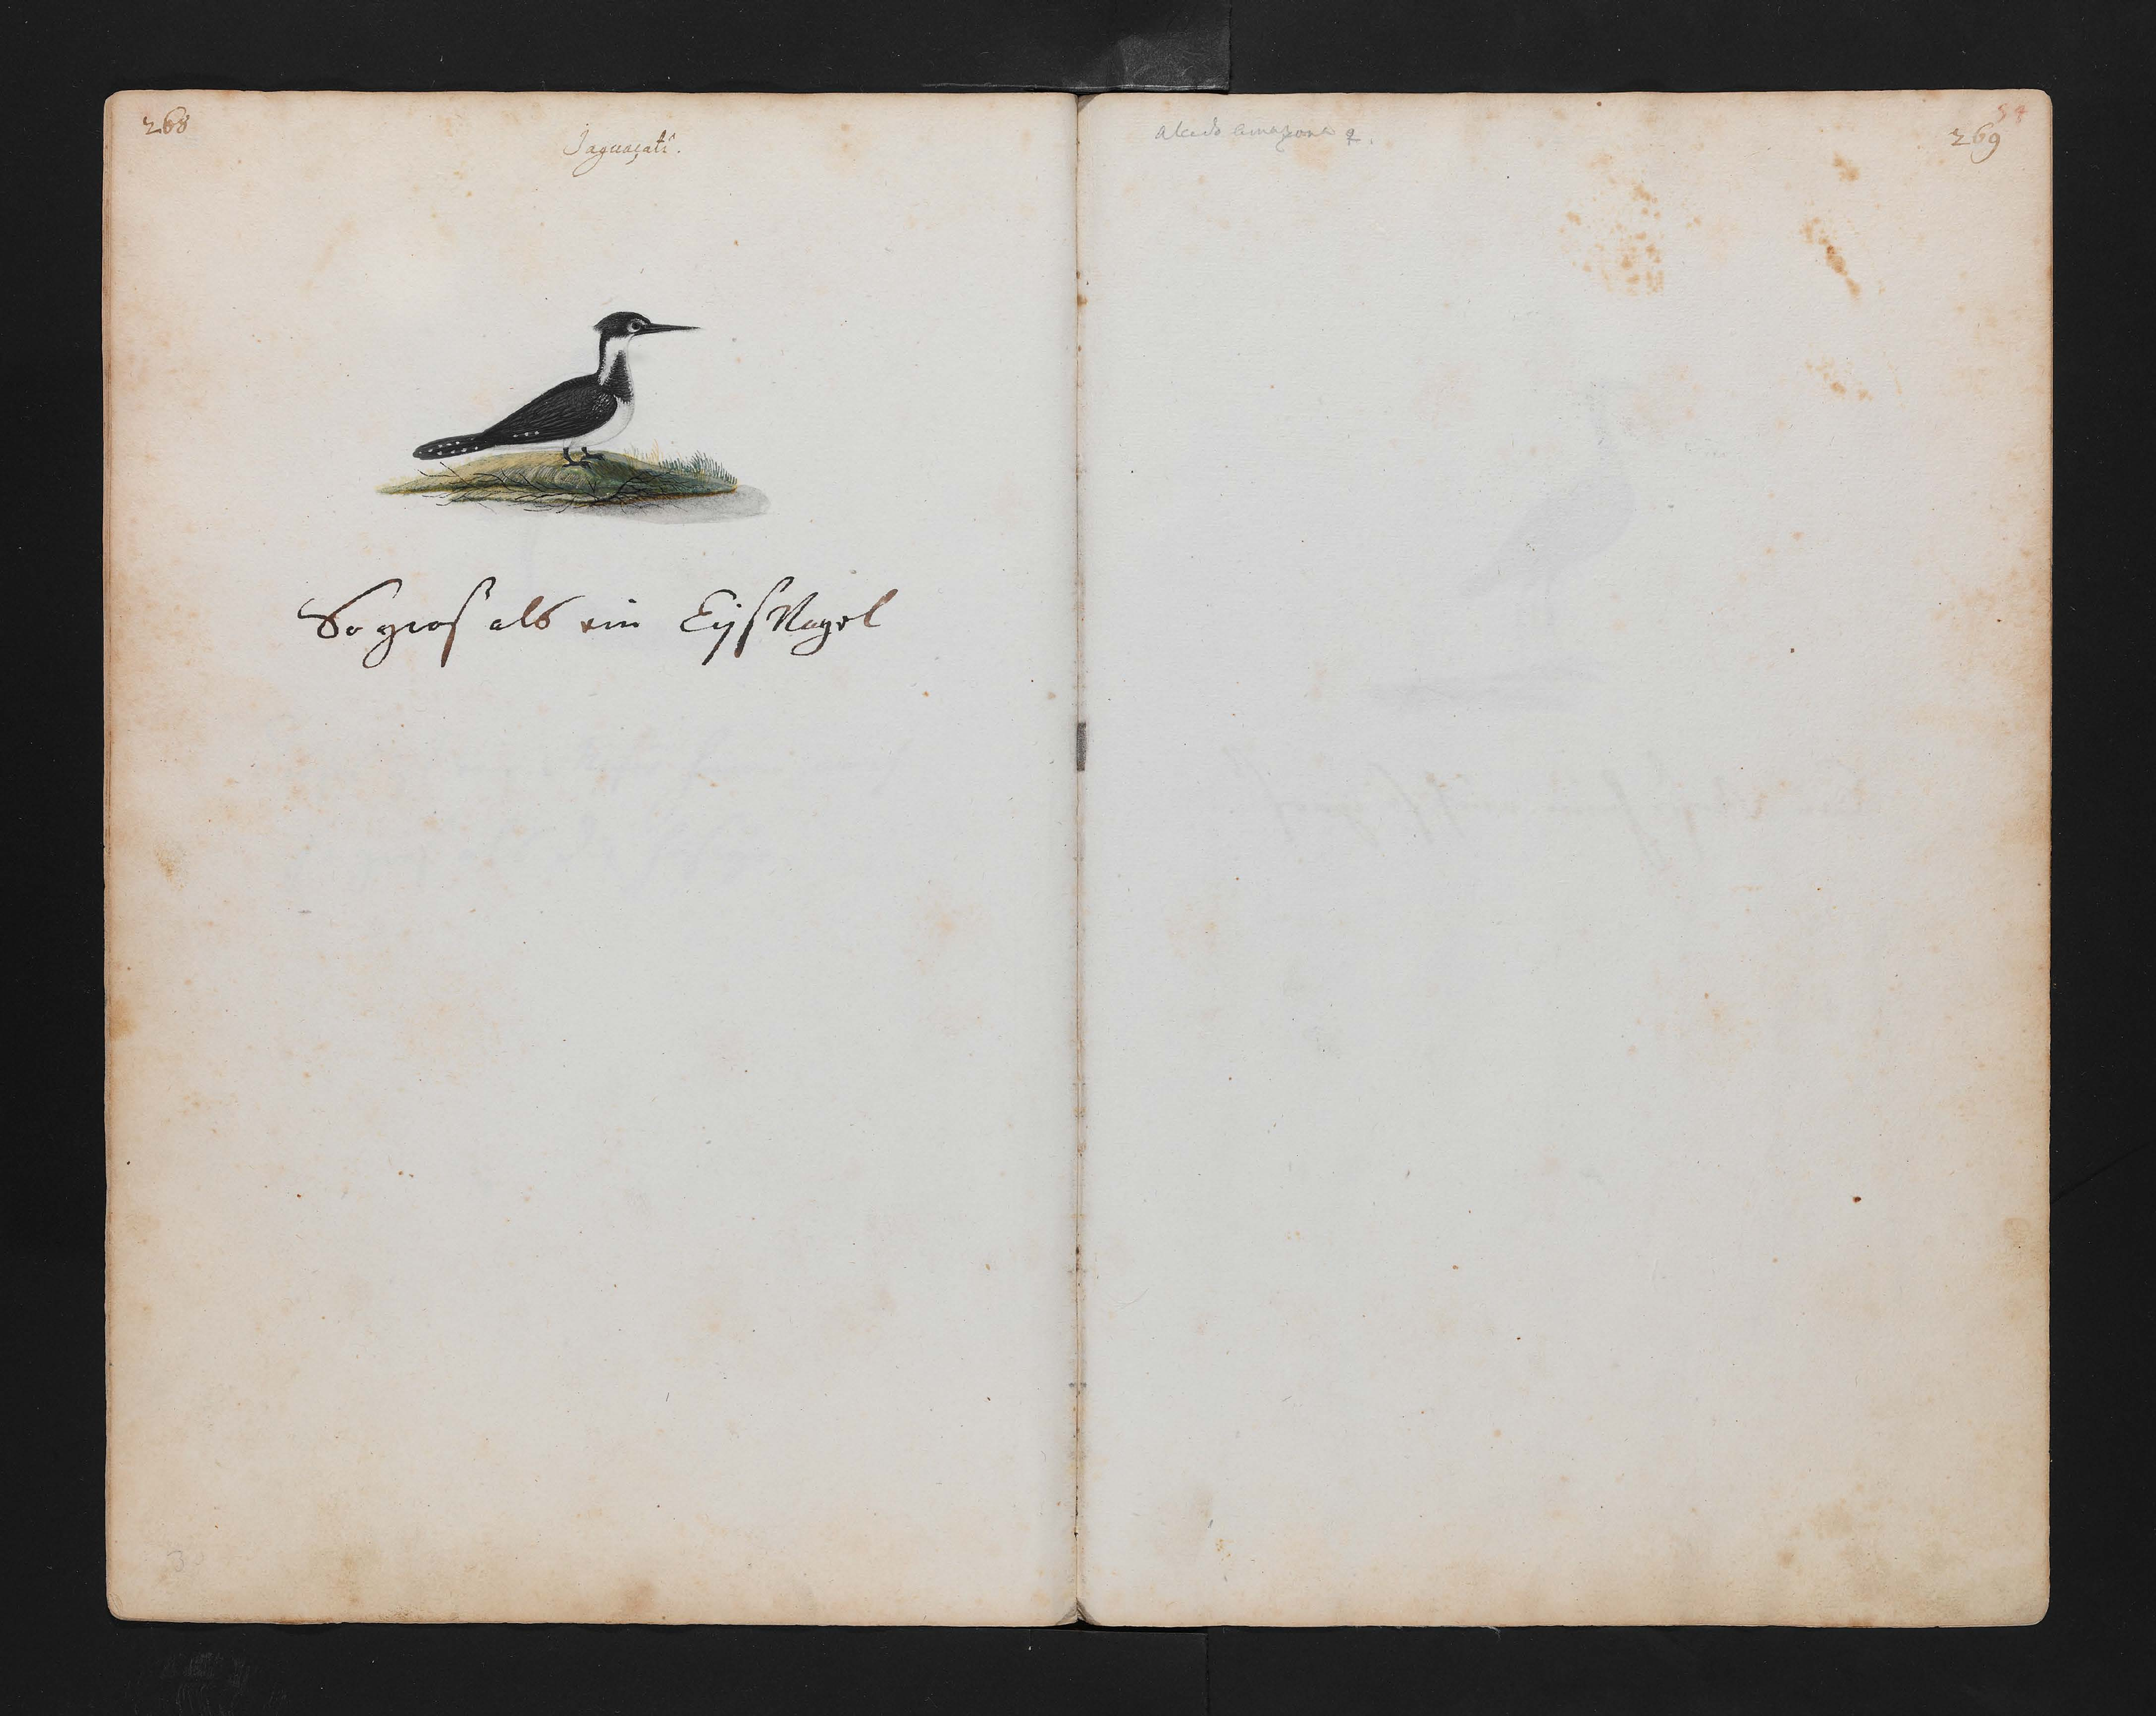 268
Jaguaçati.
So gros als ein EijsVogel
3
54
269
alcedo amazona ♀.